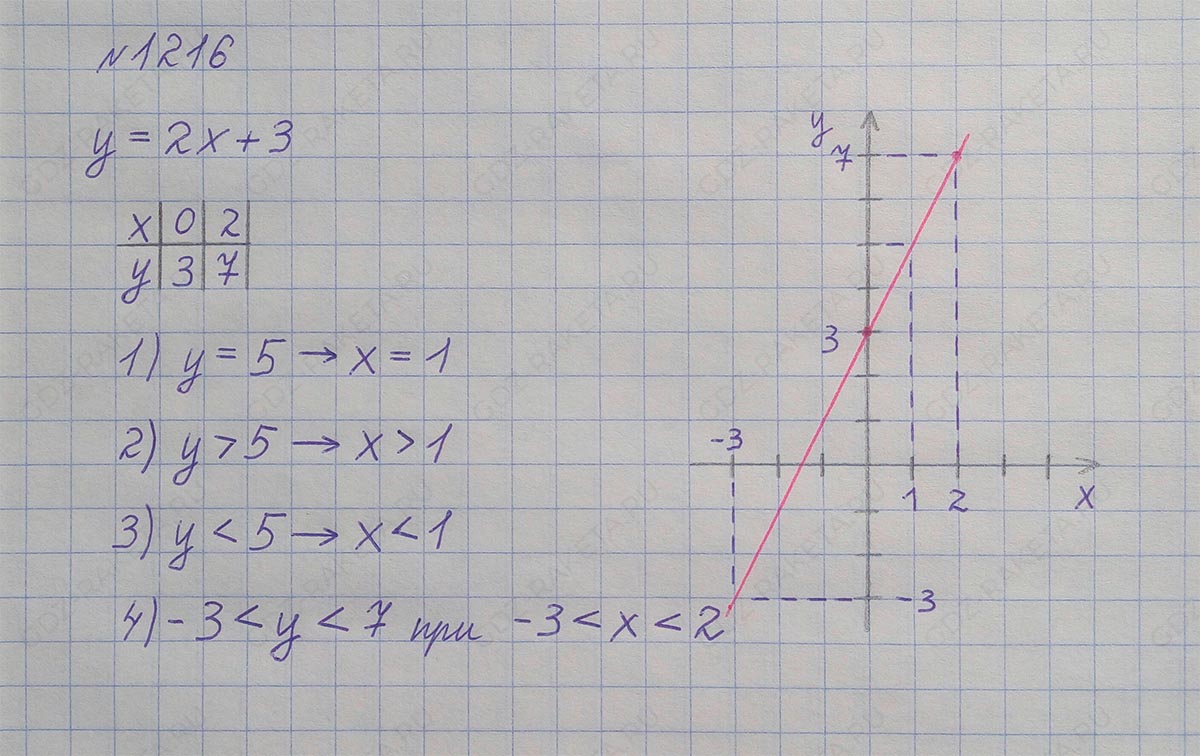 №1216
y = 2x + 3
x | 0 | 2
y | 3 | 7
1) y = 5 → x = 1
2) y > 5 → x > 1
3) y < 5 → x < 1
4) -3 < y < 7 при -3 < x < 2
y
7
3
-3
1 2 x
-3
GDZ-RAKETA.RU